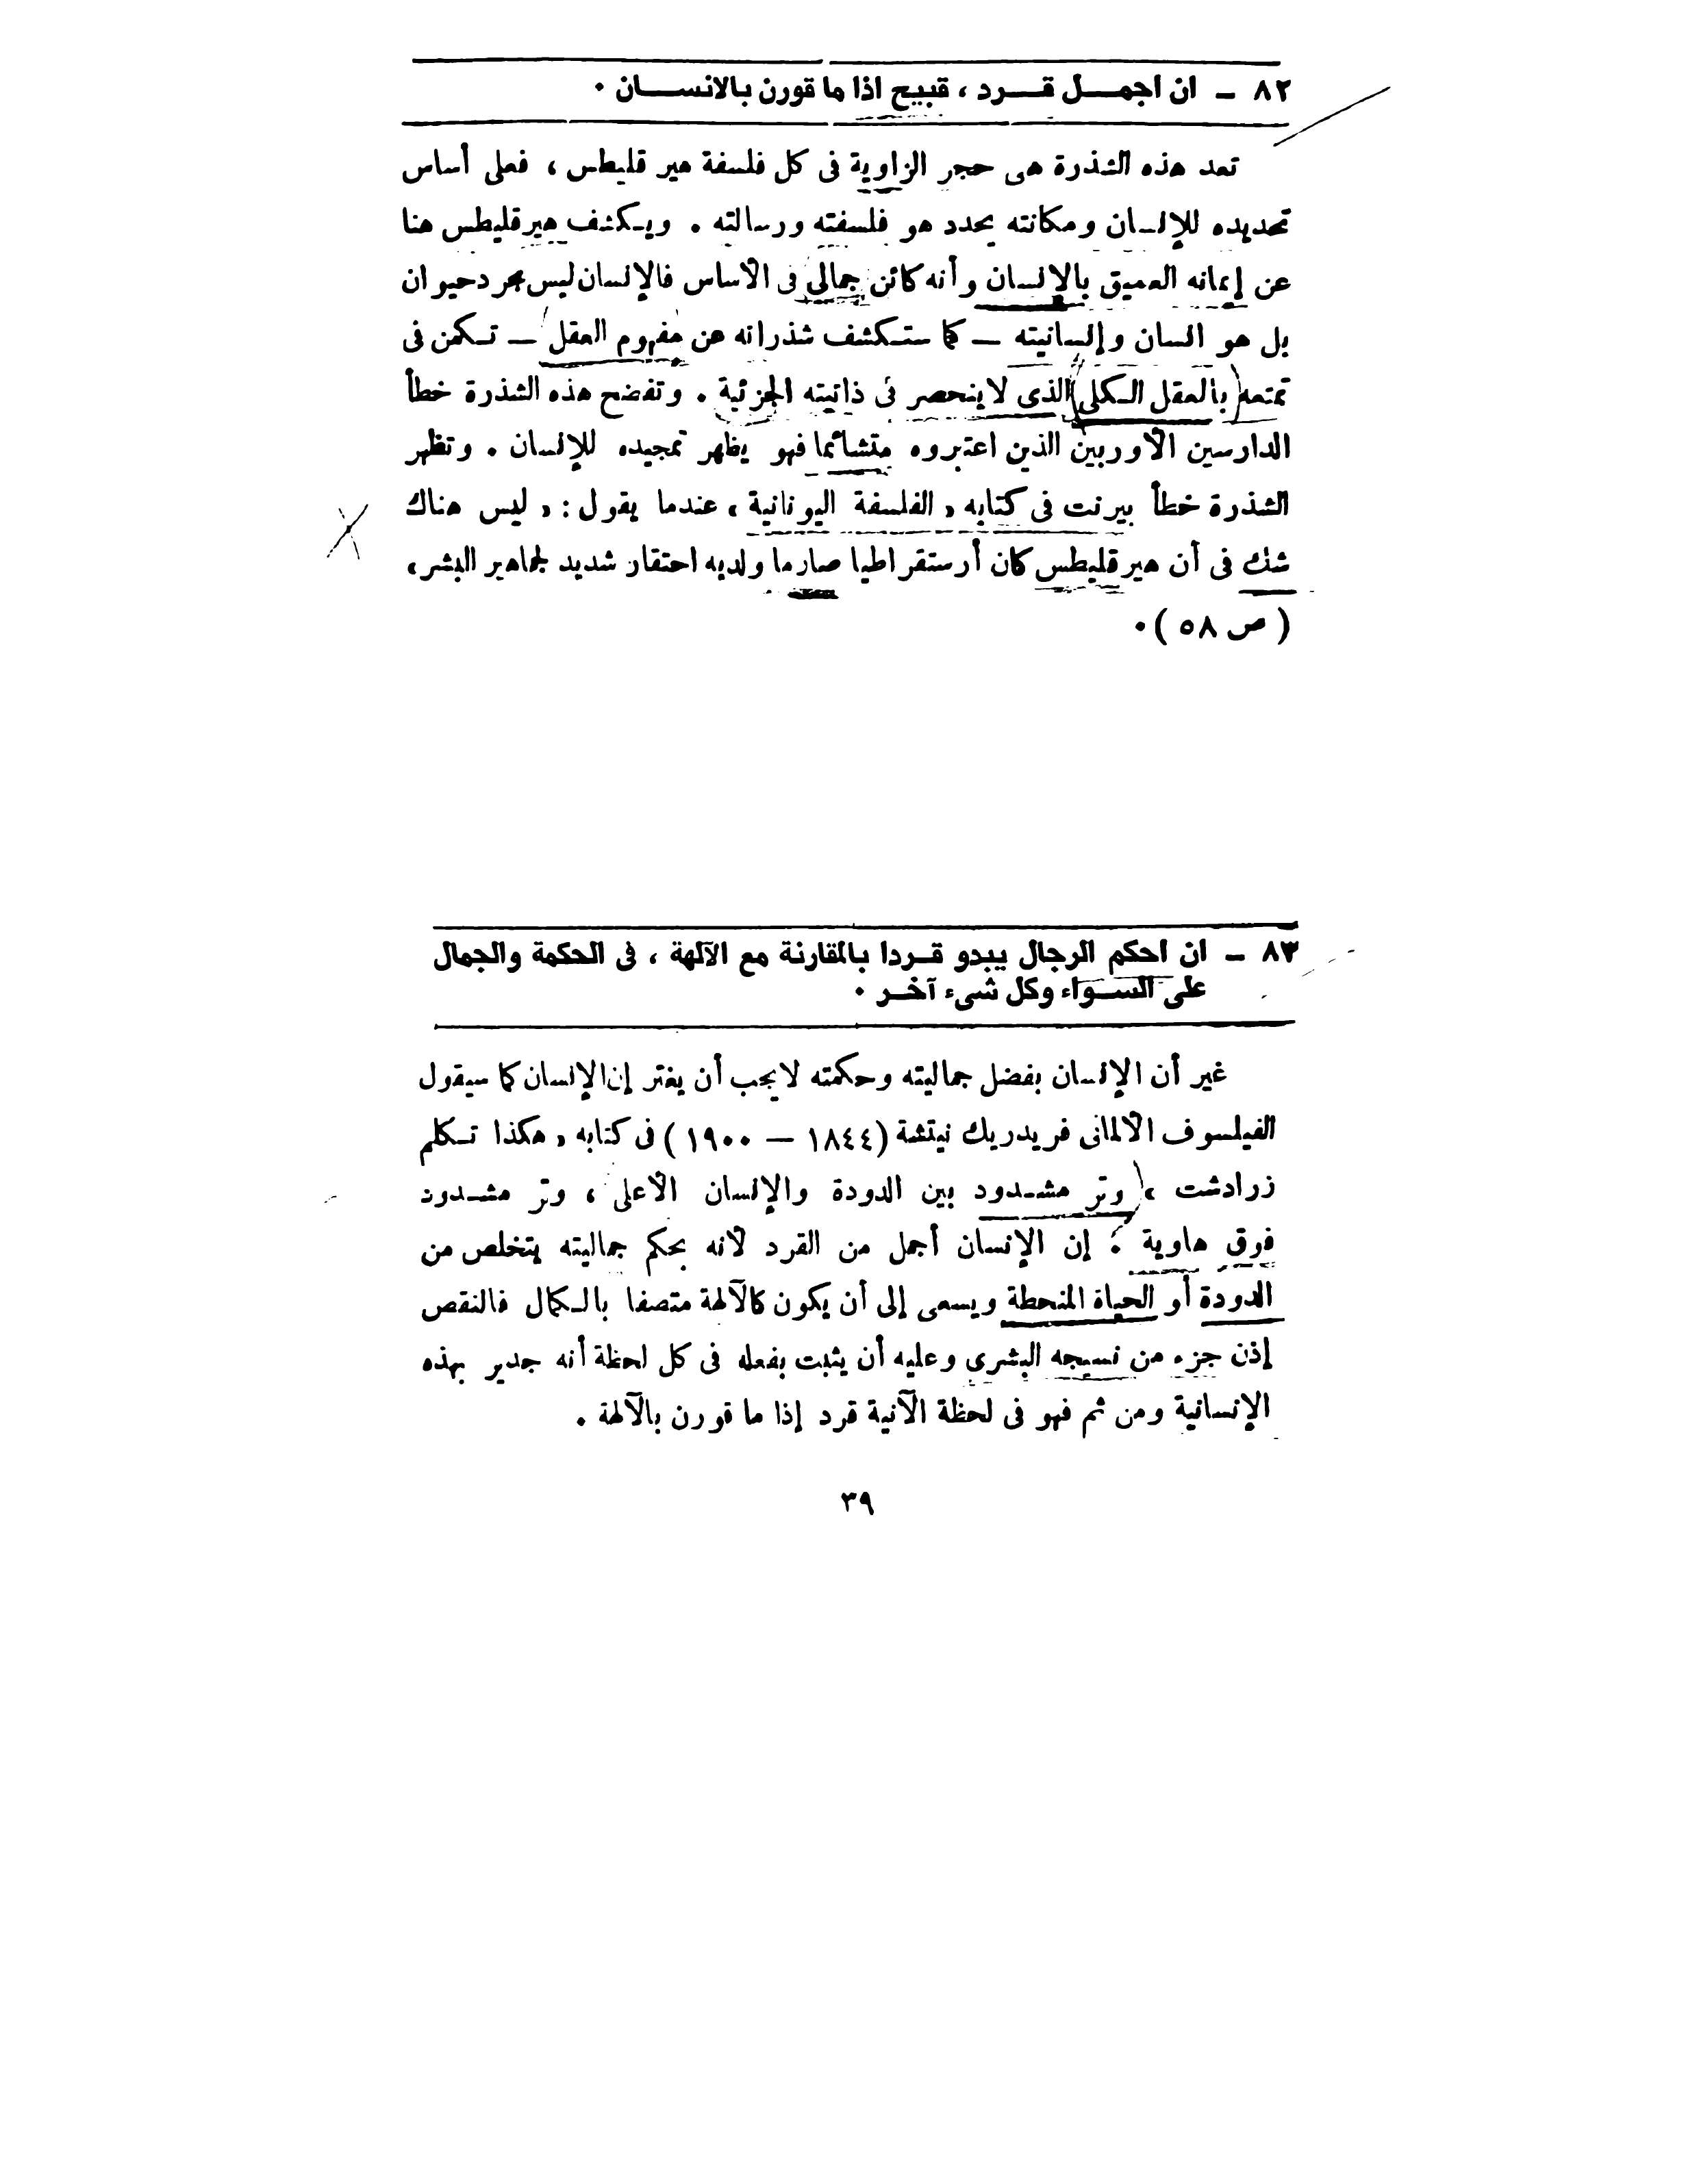 ٨٢ ــ ان اجمـــل قـــرد ، قبيح اذا ما قورن بالانســـان ٠
تعد هذه الشذرة هى حجر الزاوية فى كل فلسفة هير قليطس ، فعلى أساس
تحديده للإنسان ومكانته يحدد هو فلسفته ورسالته . ويكشف هيرقليطس هنا
عن إيمانه العميق بالإنسان وأنه كائن جمالى فى الأساس فالإنسان ليس مجرد حيوان
بل هو انسان وإنسانيته — كما ستكشف شذراته عن مفهوم العقل — تكمن فى
تمتعه بالعقل الكلى الذى لاينحصر فى ذاتيته الجزئية . وتفضح هذه الشذرة خطأ
الدارسين الأوربين الذين اعتبروه متشائما فهو يظهر تمجيده للإنسان . وتظهر
الشذرة خطأ بيرنت فى كتابه « الفلسفة اليونانية » عندما يقول : « ليس هناك
شك فى أن هيرقليطس كان أرستقراطيا صارما ولديه احتقار شديد لجماهير البشر »
( ص ٥٨ ) ٠
٨٣ ــ ان احكم الرجال يبدو قـــردا بالمقارنة مع الآلهة ، فى الحكمة والجمال
على الســـواء وكل شىء آخـــر ٠
غير أن الإنسان بفضل جماليته وحكمته لا يجب أن يغتر إن الإنسان كما سيقول
الفيلسوف الألمانى فريدريك نيتشة ( ١٨٤٤ — ١٩٠٠ ) فى كتابه « هكذا تكلم
زرادشت » وتر مشدود بين الدودة والإنسان الأعلى ، وتر مشدود
فوق هاوية ؛ إن الإنسان أجمل من القرد لأنه بحكم جماليته يتخلص من
الدودة أو الحياة المنحطة ويسعى إلى أن يكون كالآلهة متصفا بالكمال فالنقص
إذن جزء من نسيجه البشرى وعليه أن يثبت بفعله فى كل لحظة أنه جدير بهذه
الإنسانية ومن ثم فهو فى لحظة الآنية قرد إذا ما قورن بالآلهة .
٣٩